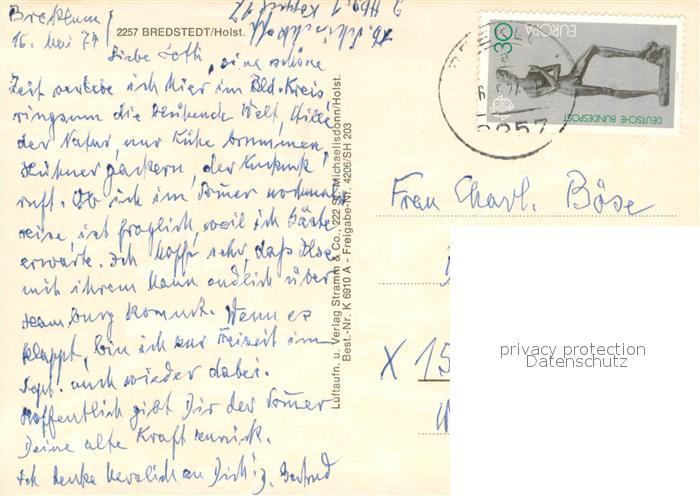 Breklum
16. Mai 74
2257 BREDSTEDT/Holst.
Liebe Lotti, eine schöne
Zeit verlebe ich hier im Bld.-Kreis
ringsum die blühende Welt, Stille
der Natur, nur Kühe brummen,
Hühner gackern, der Kuckuck
ruft. Ob ich im Sommer nochmal
reise ist fraglich, weil ich Gäste
erwarte. Ich hoffe sehr, daß Ilse
mit ihrem Mann endlich über
Hamburg kommt. Wenn es
klappt, bin ich zur Freizeit im
Sept. auch wieder dabei.
Hoffentlich gibt Dir der Sommer
Deine alte Kraft zurück.
Ich denke herzlich an Dich! Gertrud
Luftaufn. u. Verlag Stramm & Co., 222 St. Michaelisdonn/Holst.
Best.-Nr. K 6910 A - Freigabe-Nr. 4206/SH 203
30
EUROPA
DEUTSCHE BUNDESPOST
2257
Frau Charl. Böse
X 15
privacy protection
Datenschutz